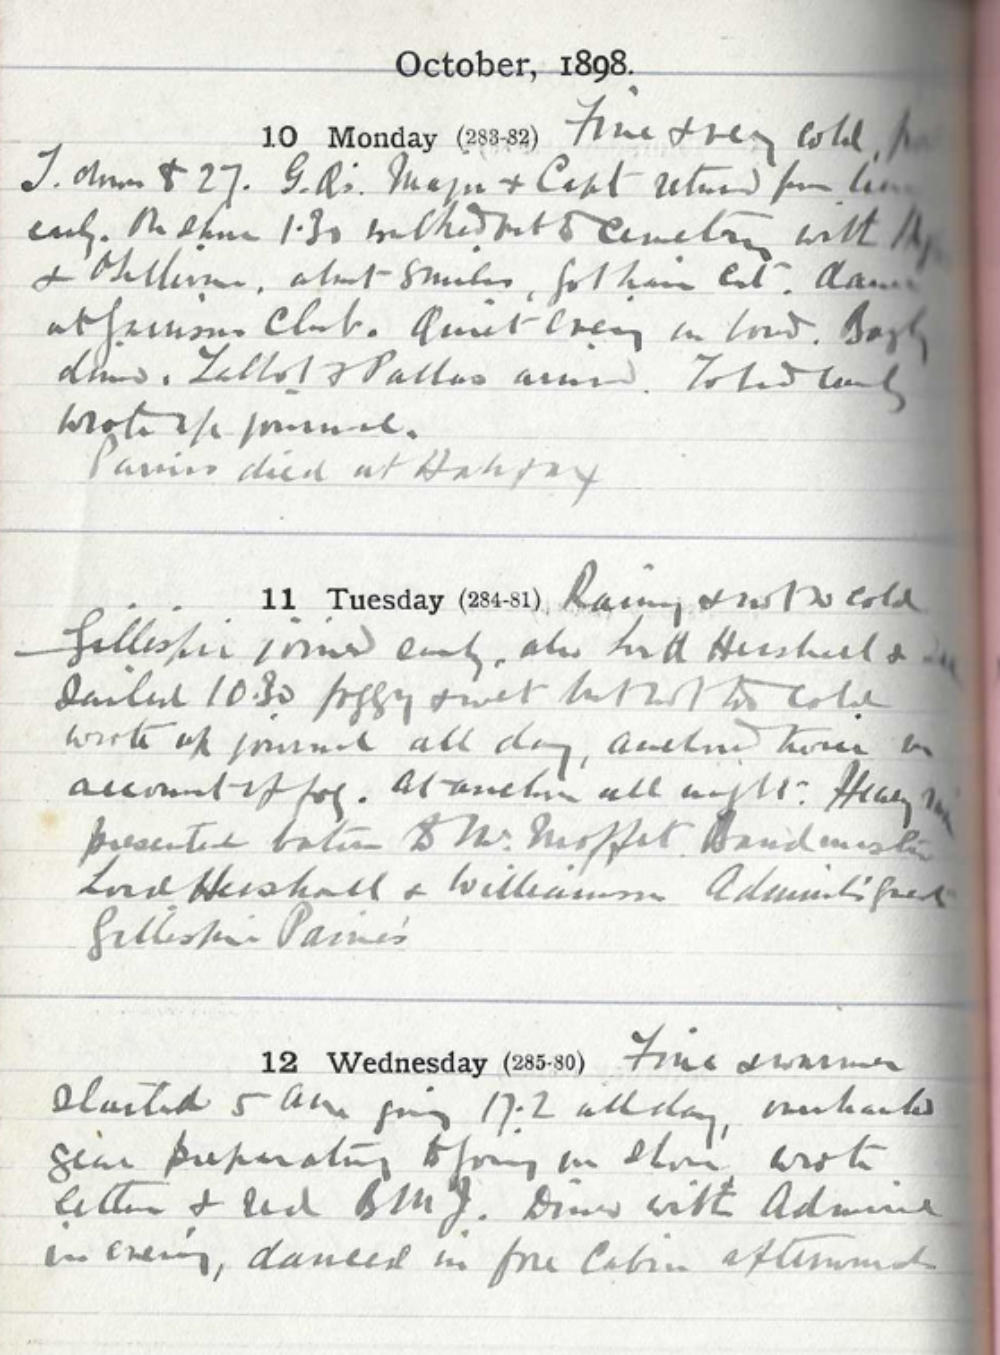 October, 1898.
10 Monday (283-82) Fine & very cold,
T. down to 27. G.Qs. Major & Capt return from
early. On shore 1.30 walked out to Cemetery with
& O'Sullivan, about 5 miles, got hair cut.
at Garrison Club. Quiet evening on board.
dined. Talbot & Pallas arrived. To bed early
wrote up journal.
died at Halifax
11 Tuesday (284-81) Rainy & not so cold
Gillespie joined early, also Lord Herschell &
Sailed 10.30 foggy & wet but not too cold
wrote up journal all day, anchored twice on
account of fog. At anchor all night. Heavy rain
presented baton to Mr. Moffet Bandmaster
Lord Herschell & Williamson Admiral's guests
Gillespie
12 Wednesday (285-80) Fine & warmer
Started 5 am going 17.2 all day, overhauled
gear preparatory to going on shore, wrote
letter & read BMJ. Dined with Admiral
in evening, danced in fore cabin afterwards